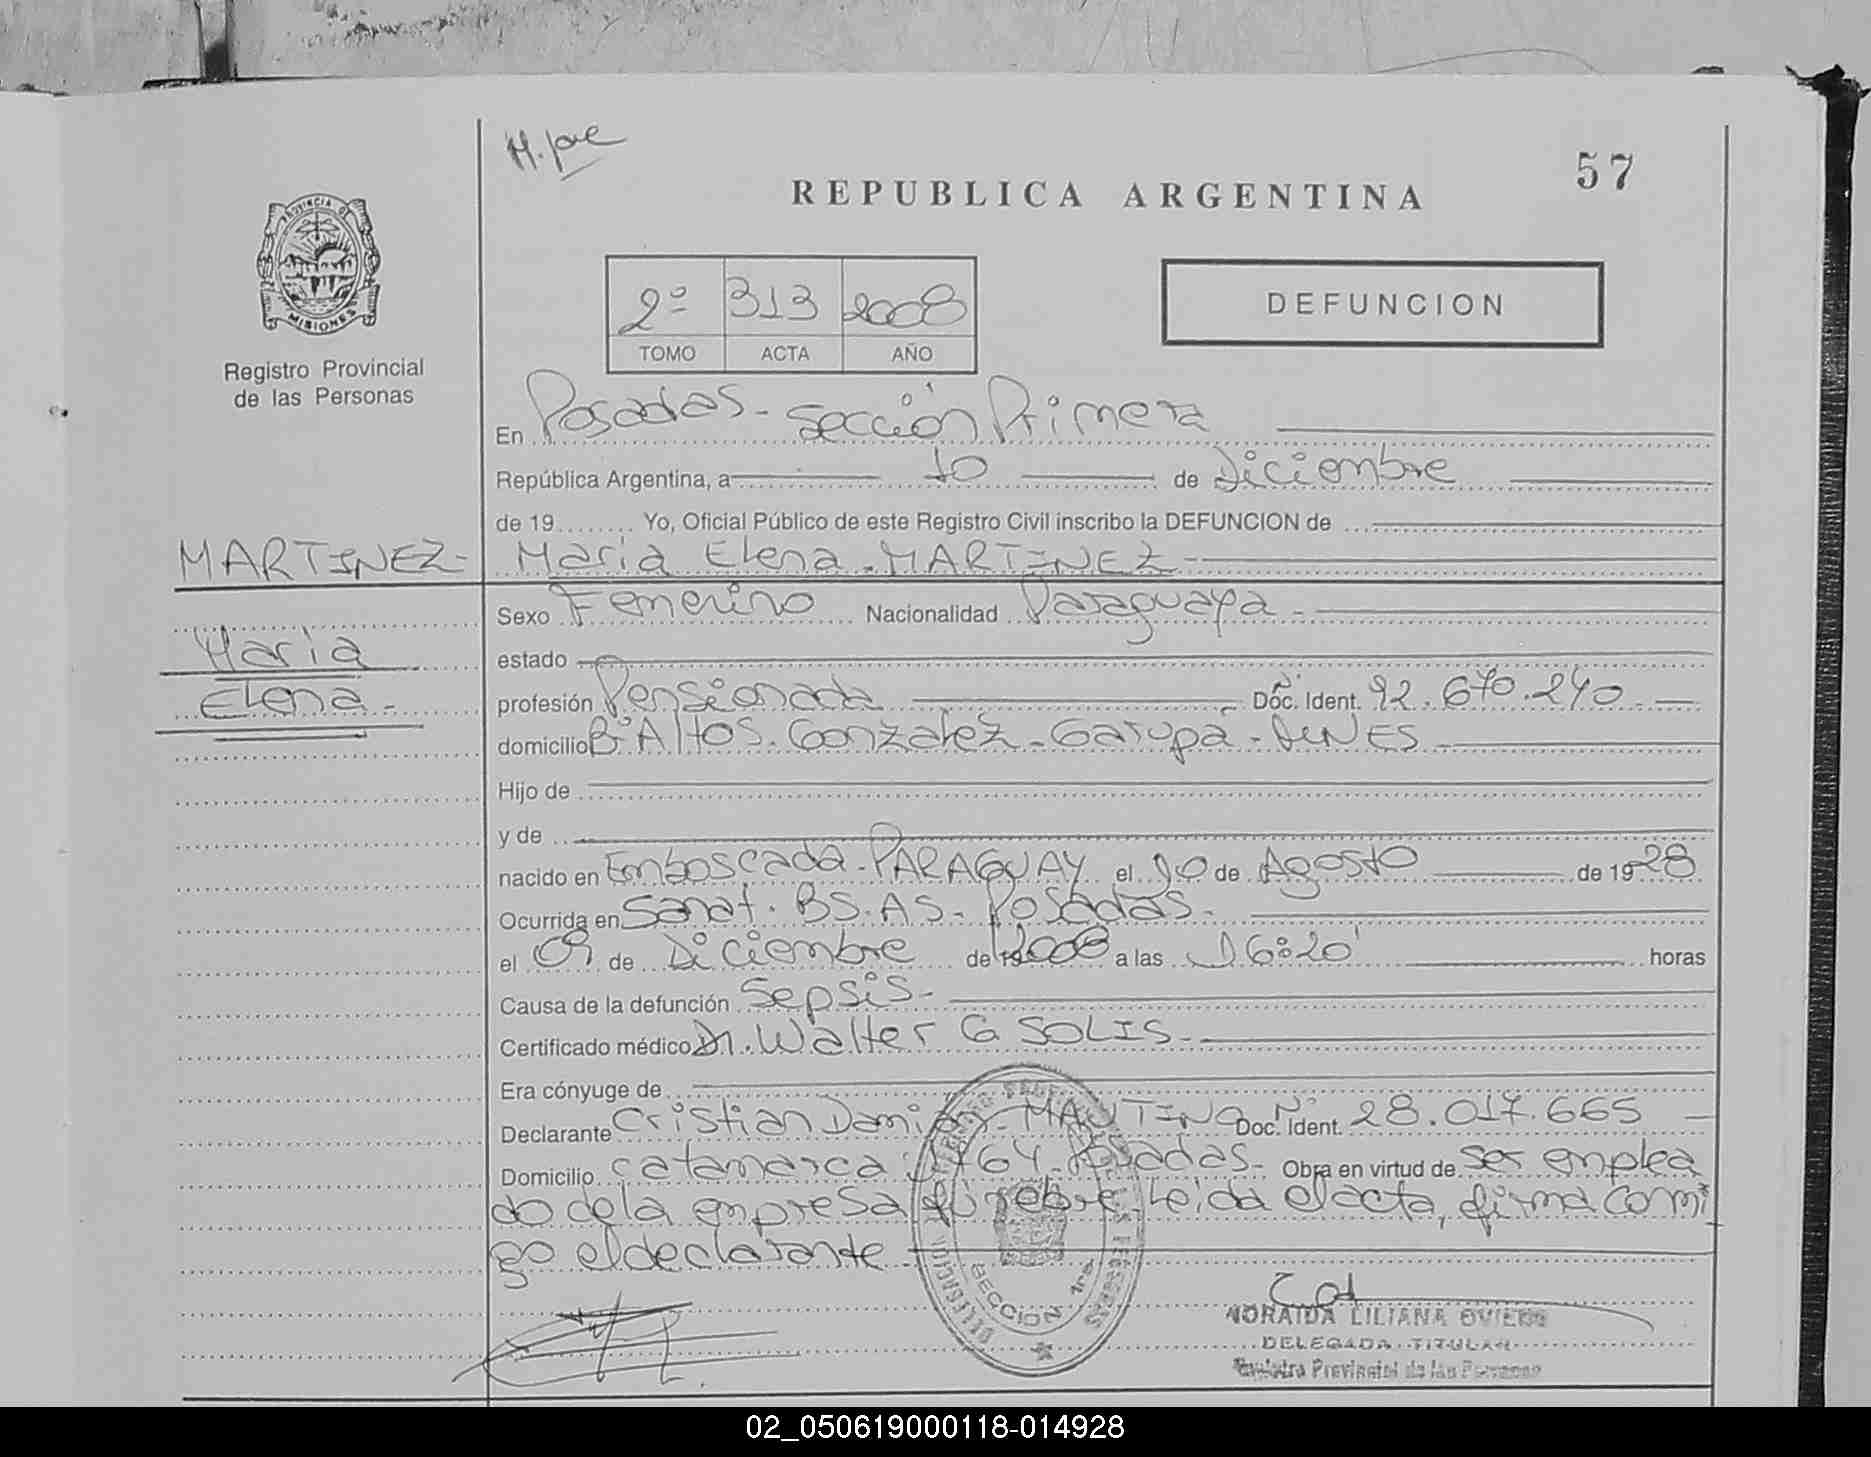 57
REPUBLICA ARGENTINA
PROVINCIA DE
MISIONES
Registro Provincial
de las Personas
2º 313 2008
TOMO ACTA AÑO
DEFUNCION
En Posadas - Sección Primera
República Argentina, a 10 de Diciembre
de 19........ Yo, Oficial Público de este Registro Civil inscribo la DEFUNCION de
MARTINEZ - Maria Elena - MARTINEZ
Maria
Elena -
Sexo Femenino Nacionalidad Paraguaya -
estado
profesión Pensionada Doc. Ident. Nº 92.670.240
domicilio Bº Altos. Gonzalez - Garupá -
Hijo de
y de
nacido en Emboscada - PARAGUAY el 10 de Agosto de 1928
Ocurrida en Sanat. BS.AS - Posadas -
el 09 de Diciembre de 2008 a las 16:20' horas
Causa de la defunción Sepsis -
Certificado médico Dr. Walter G SOLIS -
Era cónyuge de
Declarante Cristian Damián - Doc. Ident. Nº 28.017.665
Domicilio Catamarca Posadas - Obra en virtud de ser emplea
do de la empresa fúnebre. Leida el acta, firma conmi
go el declarante
SECCION 1ra.
NORAIDA LILIANA OVIEDO
DELEGADA TITULAR
Registro Provincial de las Personas
02_050619000118-014928